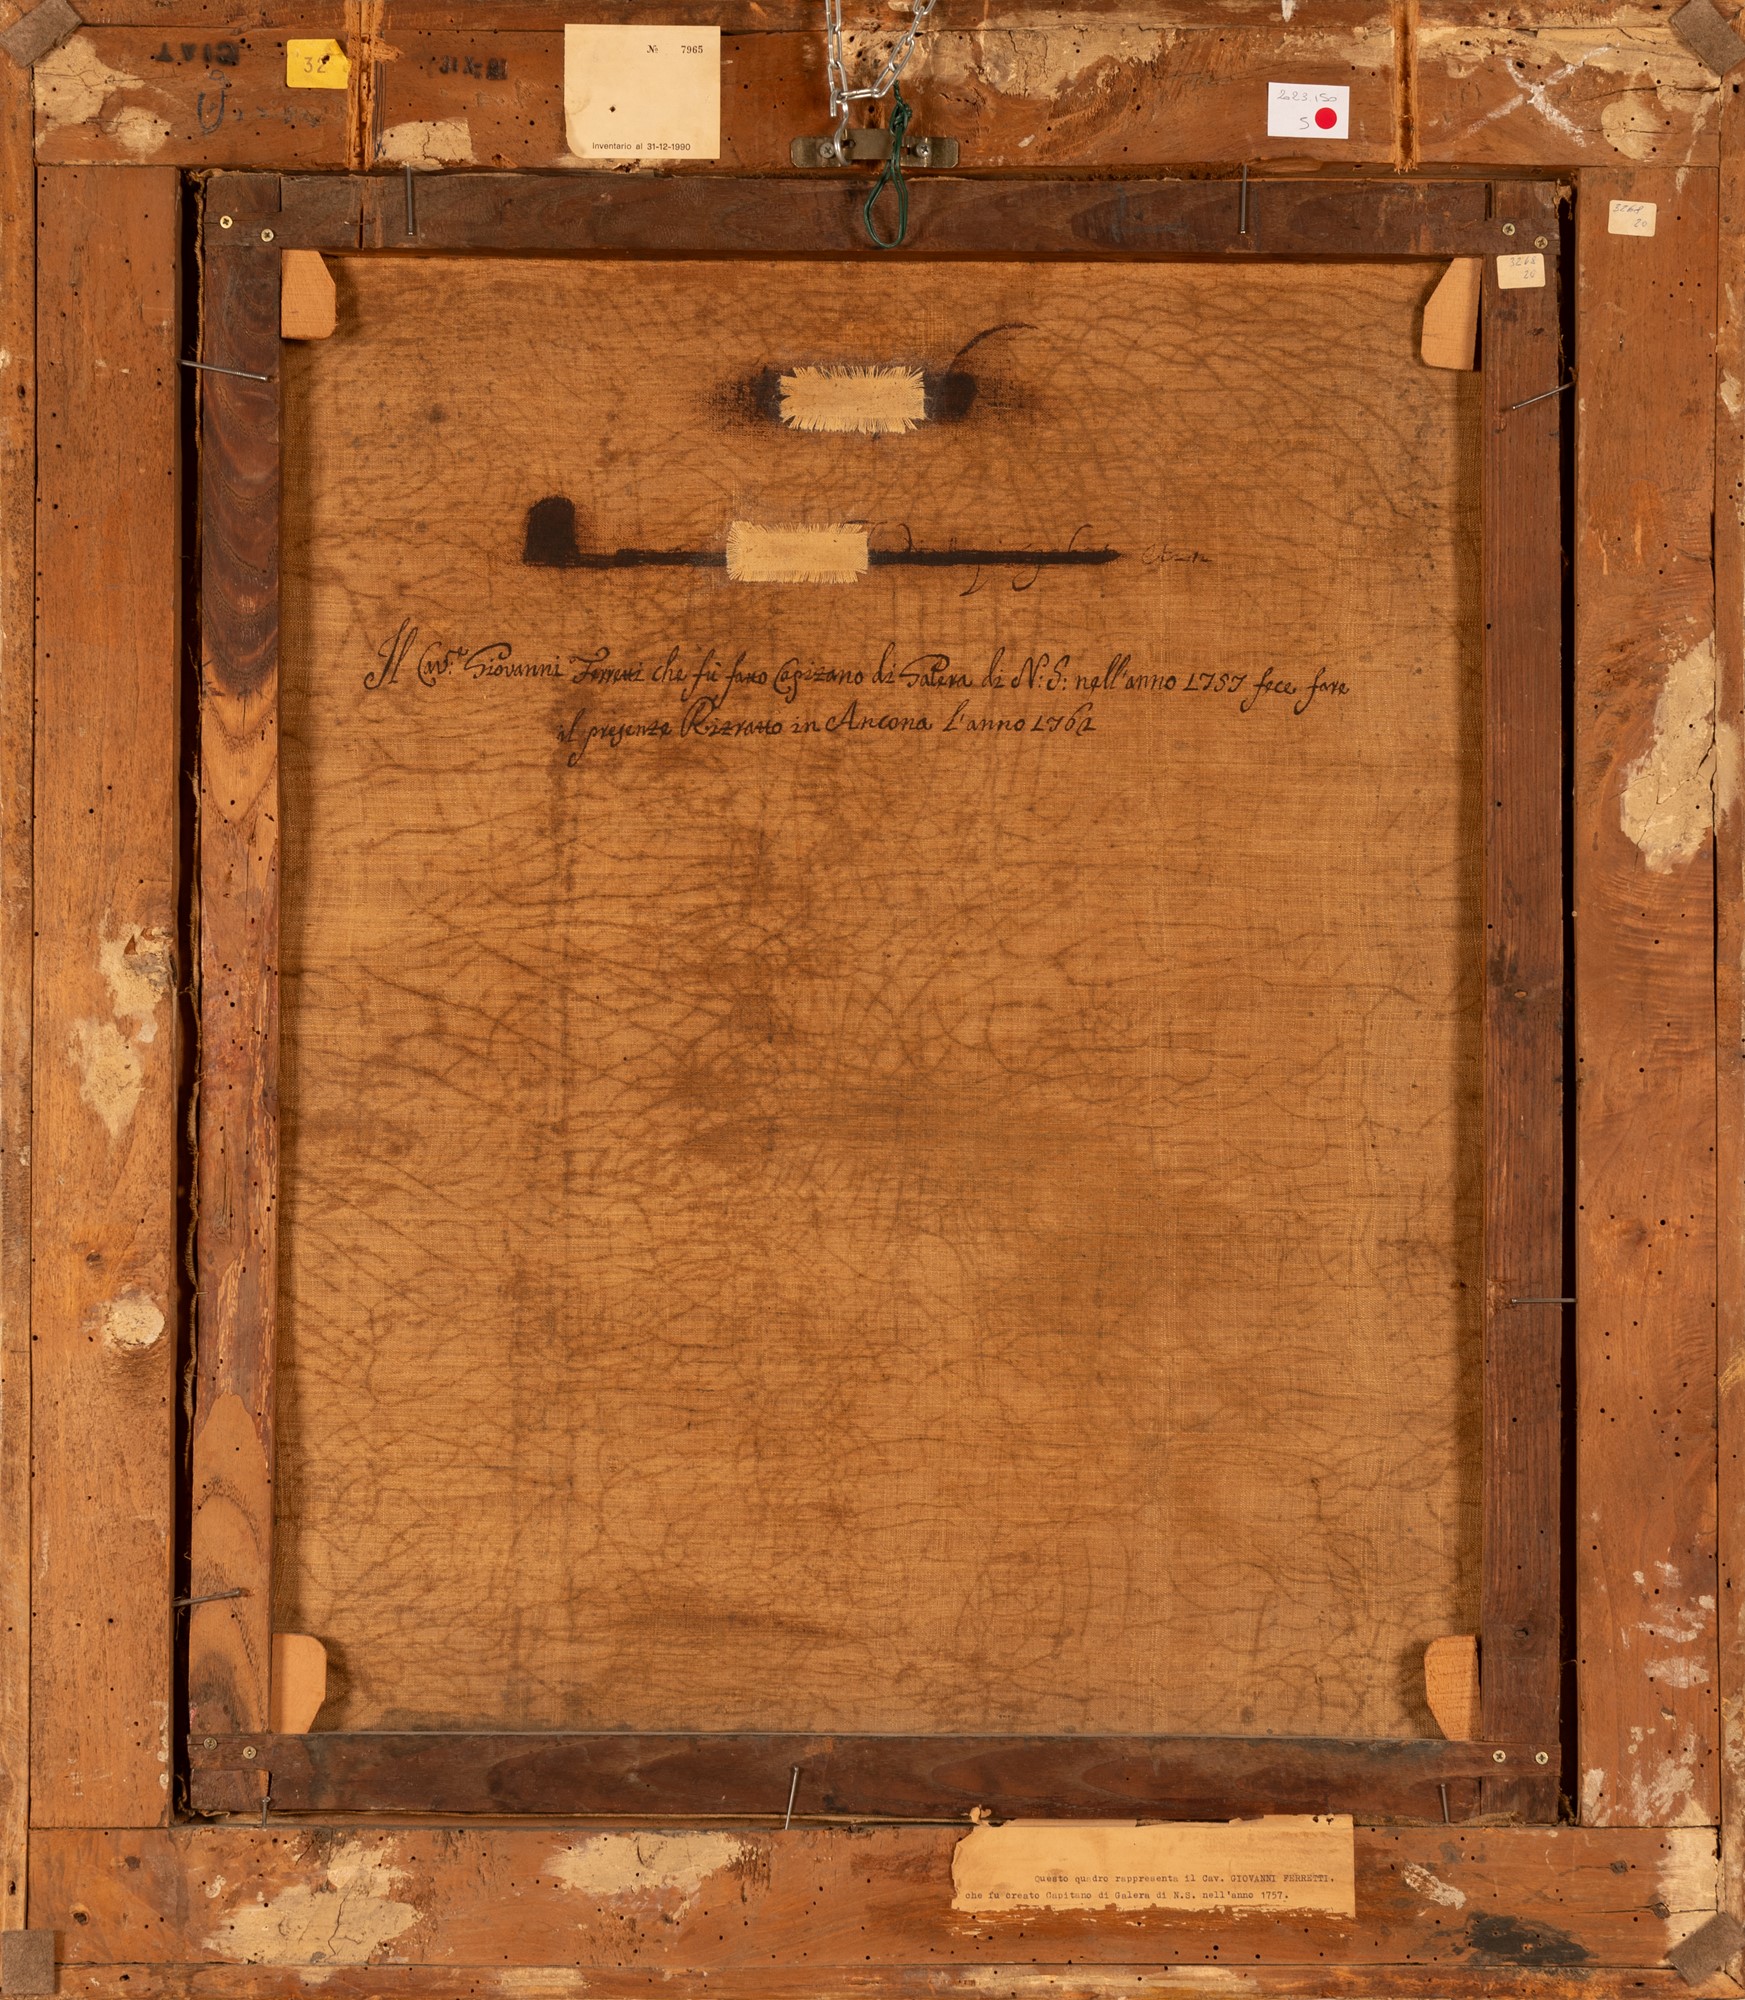 32
№ 7965
Inventario al 31-12-1990
2023.150
S
3268
20
3268
20
Il Cav.re Giovanni Ferretti che fù fatto Capitano di Galera di N: S: nell'anno 1757 fece fare
il presente Ritratto in Ancona l'anno 1762
Questo quadro rappresenta il Cav. GIOVANNI FERRETTI,
che fu creato Capitano di Galera di N.S. nell'anno 1757.